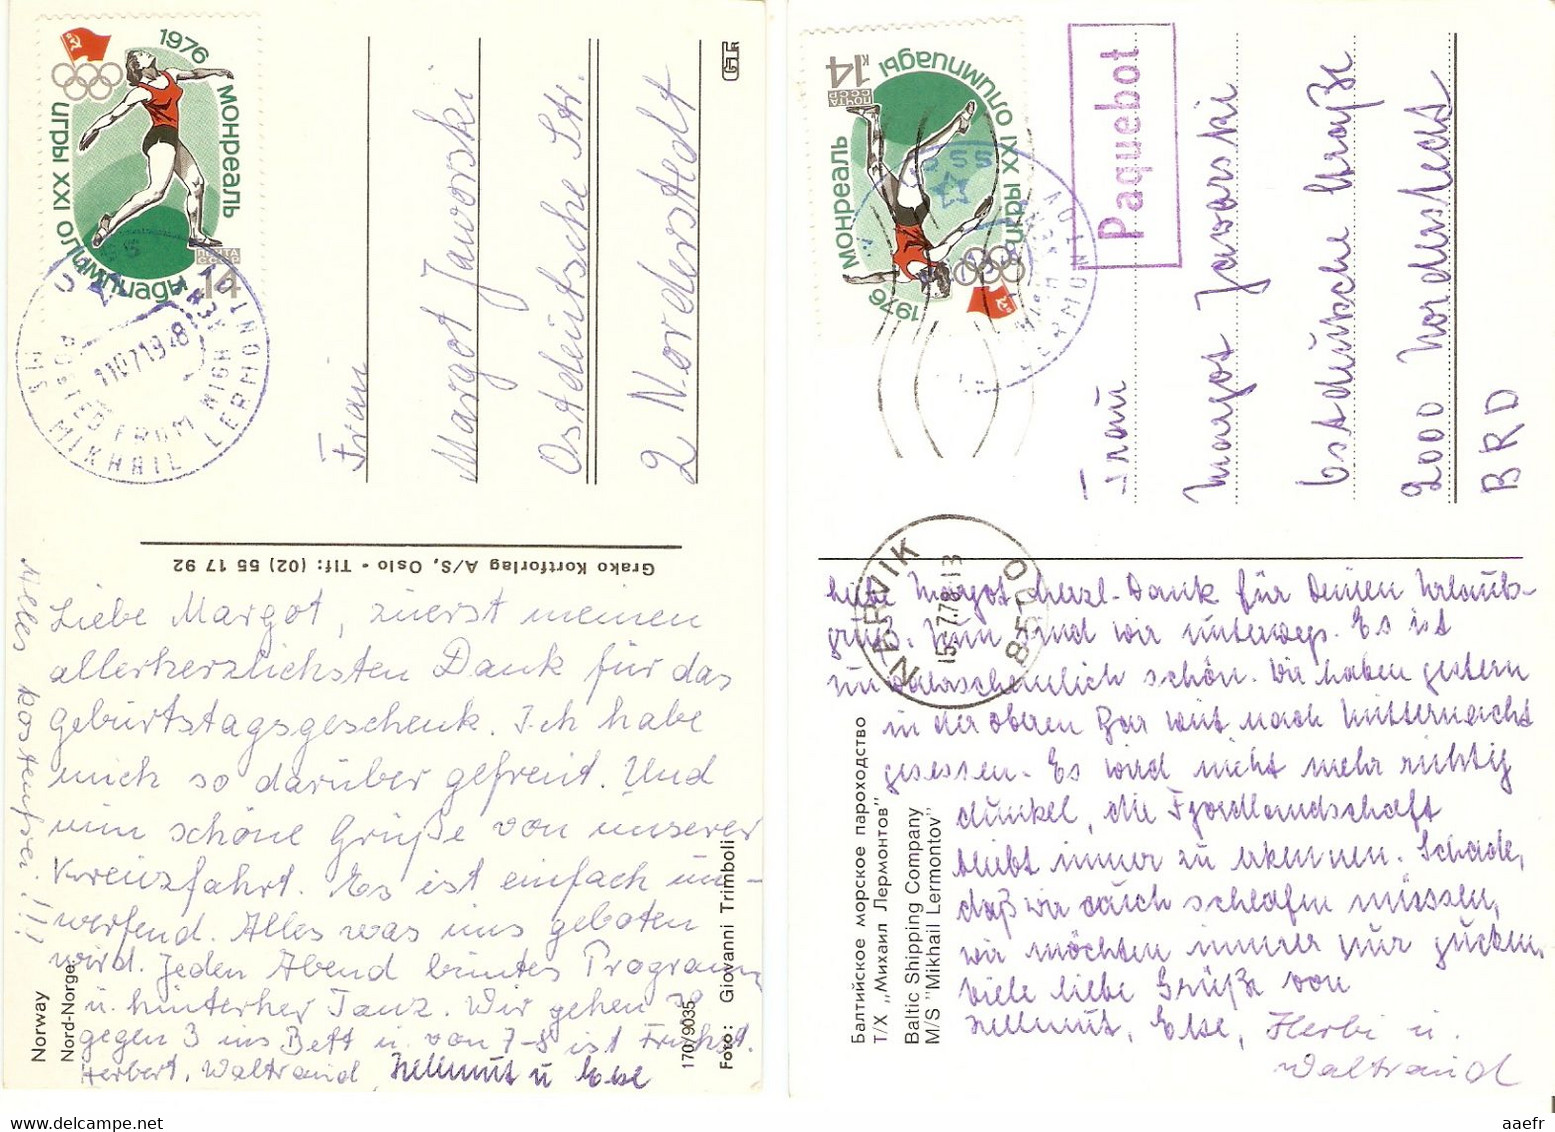 1976
МОНРЕАЛЬ
ИГРЫ XXI ОЛИМПИАДЫ
ПОЧТА
СССР
14
POSTED FROM HIGH SEA
MS MIKHAIL LERMONTOV
11071978
GT
Frau
Margot Jaworski
Ostdeutsche Str.
2 Norderstedt
Grako Kortforlag A/S, Oslo - Tlf: (02) 55 17 92
Liebe Margot, zuerst meinen
allerherzlichsten Dank für das
Geburtstagsgeschenk. Ich habe
mich so darüber gefreut. Und
nun schöne Grüße von unserer
Kreuzfahrt. Es ist einfach um-
werfend. Alles was uns geboten
wird. Jeden Abend buntes Programm
u. hinterher Tanz. Wir gehen so
gegen 3 ins Bett u. von 7-8 ist Frühst.
Herbert, Waltraud, Hellmut u Else
Alles kostenfrei!!!
Norway
Nord-Norge.
170/9035
Foto: Giovanni Trimboli
14 К
ПОЧТА
СССР
ИГРЫ XXI ОЛИМПИАДЫ
МОНРЕАЛЬ
1976
Paquebot
Frau
Margot Jaworski
Ostdeutsche Straße
2000 Norderstedt
BRD
NARVIK
15-7.78 13
8501
Liebe Margot herzl. Dank für Deinen Urlaubs-
gruß. Nun sind wir unterwegs. Es ist
unwahrscheinlich schön. Wir haben gestern
in der oberen Bar weit nach Mitternacht
gesessen. Es wird nicht mehr richtig
dunkel, die Fjordlandschaft
bleibt immer zu erkennen. Schade,
daß wir auch schlafen müssen,
wir möchten immer nur gucken,
viele liebe Grüße von
Hellmut, Else, Herbi u.
Waltraud
Балтийское морское пароходство
Т/Х „Михаил Лермонтов"
Baltic Shipping Company
M/S "Mikhail Lermontov"
aaefr